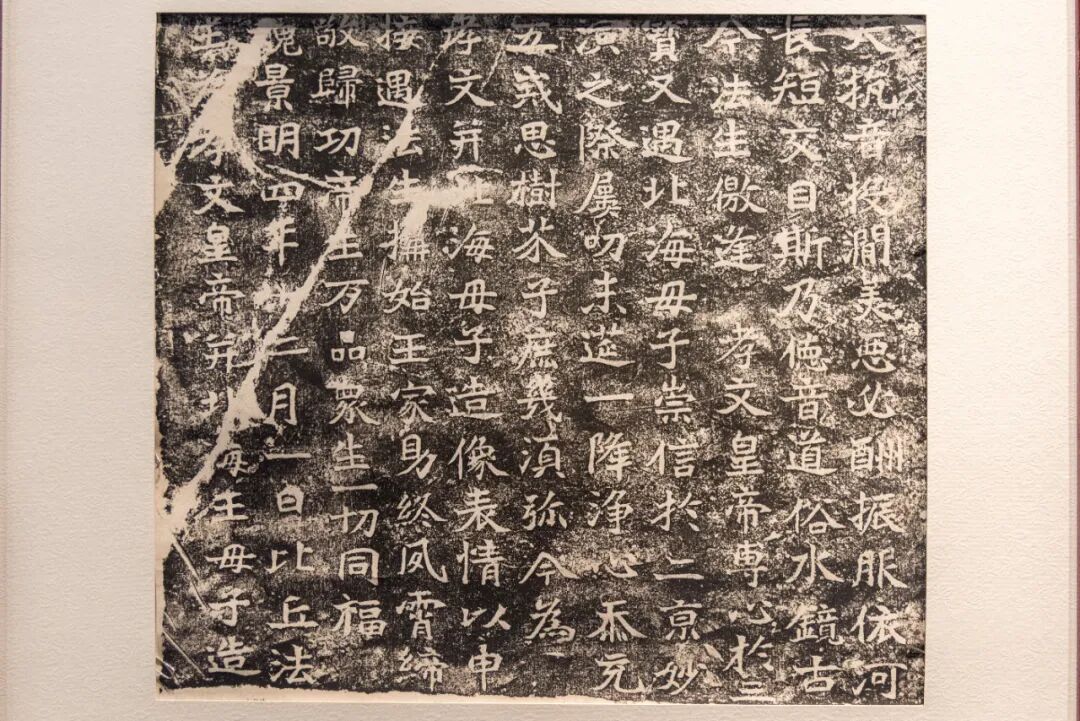 夫抗音投澗美惡必酬振服依河
長短交目斯乃德音道俗水鏡古
今法生儌逢 孝文皇帝專心於三
寶又遇北海母子崇信於二京妙
演之際屢叨末筵一降淨心忝充
五戒思樹芥子庶幾須彌今為
孝文并北海母子造像表情以申
接遇法生構始王家助終夙霄締
敬歸功帝王万品眾生一切同福
魏景明四年十二月一日比丘法
生為孝文皇帝并北海王母子造